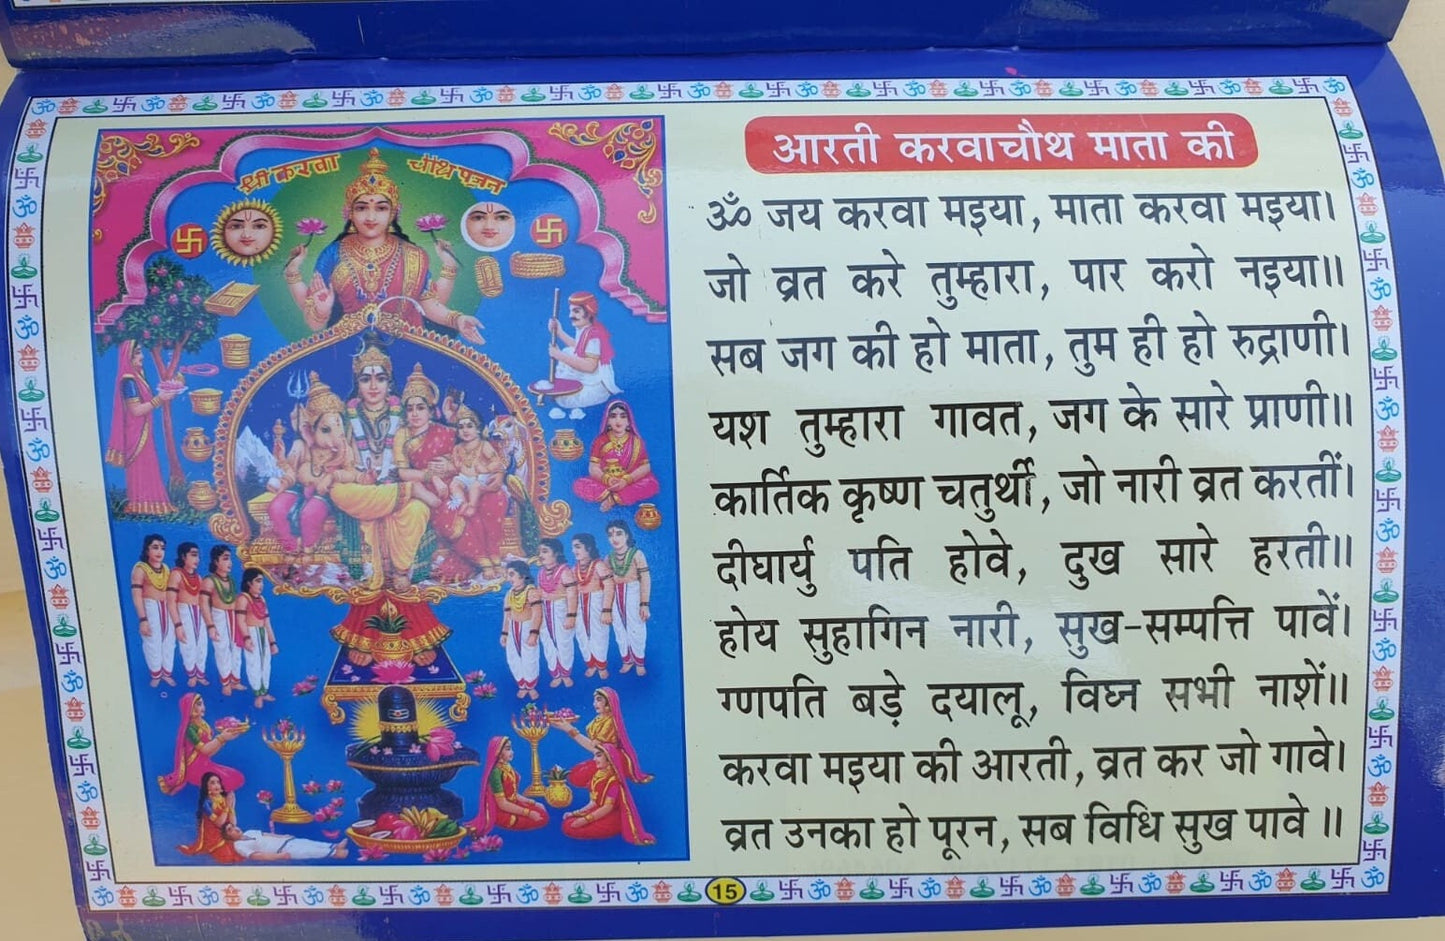 श्री करवा चौथ पूजन
आरती करवाचौथ माता की
ॐ जय करवा मइया, माता करवा मइया।
जो व्रत करे तुम्हारा, पार करो नइया॥
सब जग की हो माता, तुम ही हो रुद्राणी।
यश तुम्हारा गावत, जग के सारे प्राणी॥
कार्तिक कृष्ण चतुर्थी, जो नारी व्रत करतीं।
दीघार्यु पति होवे, दुख सारे हरती॥
होय सुहागिन नारी, सुख-सम्पत्ति पावें।
ग्णपति बड़े दयालू, विघ्न सभी नाशें॥
करवा मइया की आरती, व्रत कर जो गावे।
व्रत उनका हो पूरन, सब विधि सुख पावे ॥
15